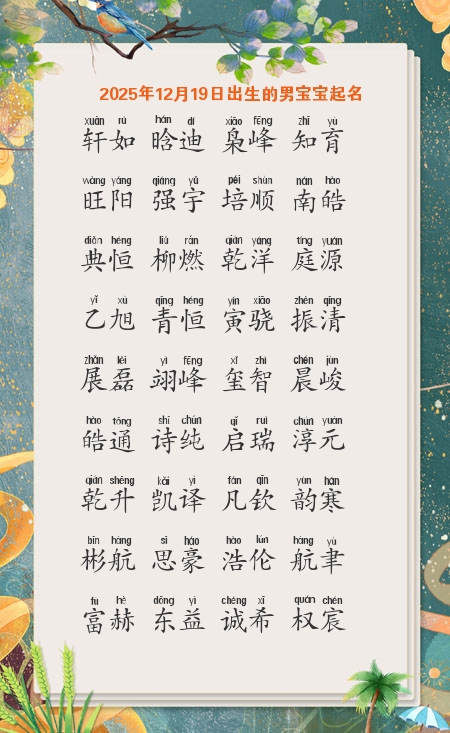 2025年12月19日出生的男宝宝起名
xuān rú hán dí xiāo fēng zhī yù
轩如 晗迪 枭峰 知育
wàng yáng qiáng yǔ péi shùn nán hào
旺阳 强宇 培顺 南皓
diǎn héng liǔ rán qián yáng tíng yuán
典恒 柳燃 乾洋 庭源
yǐ xù qīng héng yín xiāo zhèn qīng
乙旭 青恒 寅骁 振清
zhǎn lěi yì fēng xǐ zhì chén jùn
展磊 翊峰 玺智 晨峻
hào tōng shī chún qǐ ruì chún yuán
皓通 诗纯 启瑞 淳元
qián shēng kǎi yì fán qīn yùn hán
乾升 凯译 凡钦 韵寒
bīn háng sī háo hào lún háng yù
彬航 思豪 浩伦 航聿
fù hè dōng yì chéng xī quán chén
富赫 东益 诚希 权宸